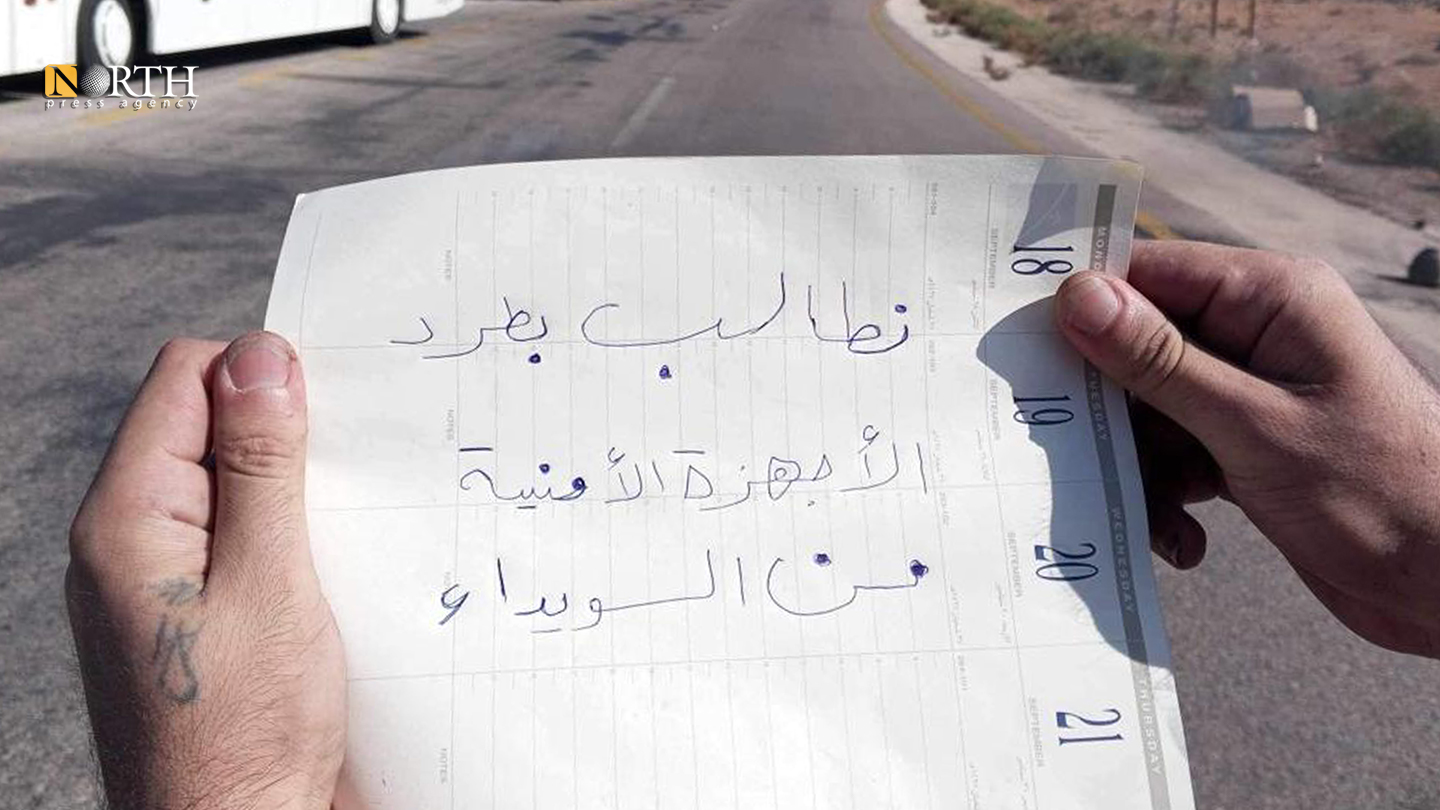 NORTH
press agency
نطالب بطرد
الأجهزة الأمنية
من السويداء
18
SEPTEMBER
19
TUESDAY
SEPTEMBER
20
WEDNESDAY
SEPTEMBER
21
THURSDAY
SEPTEMBER
NOTES
NOTES
NOTES